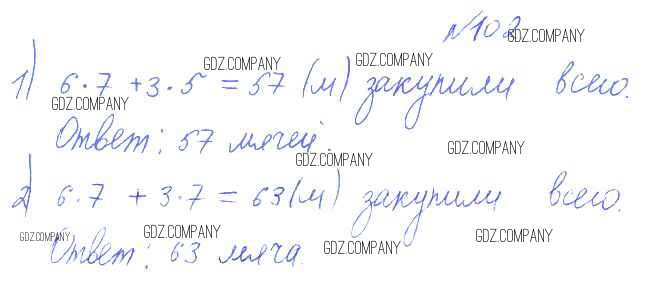 №102
1) 6·7 + 3·5 = 57 (м) закупили всего.
Ответ: 57 мячей.
2) 6·7 + 3·7 = 63 (м) закупили всего.
Ответ: 63 мяча.
GDZ.COMPANY
GDZ.COMPANY
GDZ.COMPANY
GDZ.COMPANY
GDZ.COMPANY
GDZ.COMPANY
GDZ.COMPANY
GDZ.COMPANY
GDZ.COMPANY
GDZ.COMPANY